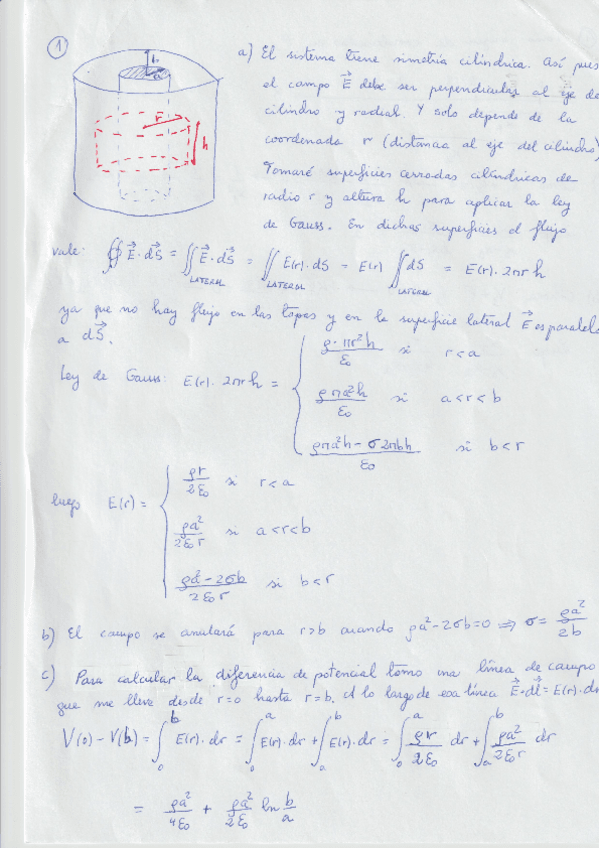 1
a) El sistema tiene simetría cilíndrica. Así pues
el campo E⃗ debe ser perpendicular al eje de
cilindro y radial. Y solo depende de la
coordenada r (distancia al eje del cilindro)
Tomaré superficies cerradas cilíndricas de
radio r y altura h para aplicar la ley
de Gauss. En dichas superficies el flujo
r
h
vale: ∯ E⃗·dS⃗ = ∬_LATERAL E⃗·dS⃗ = ∬_LATERAL E(r)·dS = E(r) ∬_LATERAL dS = E(r)·2πr h
ya que no hay flujo en las tapas y en la superficie lateral E⃗ es paralelo
a dS⃗.
Ley de Gauss: E(r)·2πrh = {
ρ·πr²h/ε₀ si r<a
ρπa²h/ε₀ si a<r<b
ρπa²h − σ2πbh/ε₀ si b<r
luego E(r) = {
ρr/2ε₀ si r<a
ρa²/2ε₀r si a<r<b
ρa²−2σb/2ε₀r si b<r
b) El campo se anulará para r>b cuando ρa²−2σb=0 ⇒ σ = ρa²/2b
c) Para calcular la diferencia de potencial tomo una línea de campo
que me lleve desde r=0 hasta r=b. A lo largo de esa línea E⃗·dl⃗ = E(r).dr
V(0) − V(b) = ∫₀ᵇ E(r)·dr = ∫₀ᵃ E(r)·dr + ∫ₐᵇ E(r)·dr = ∫₀ᵃ ρr/2ε₀ dr + ∫ₐᵇ ρa²/2ε₀r dr
= ρa²/4ε₀ + ρa²/2ε₀ ln b/a